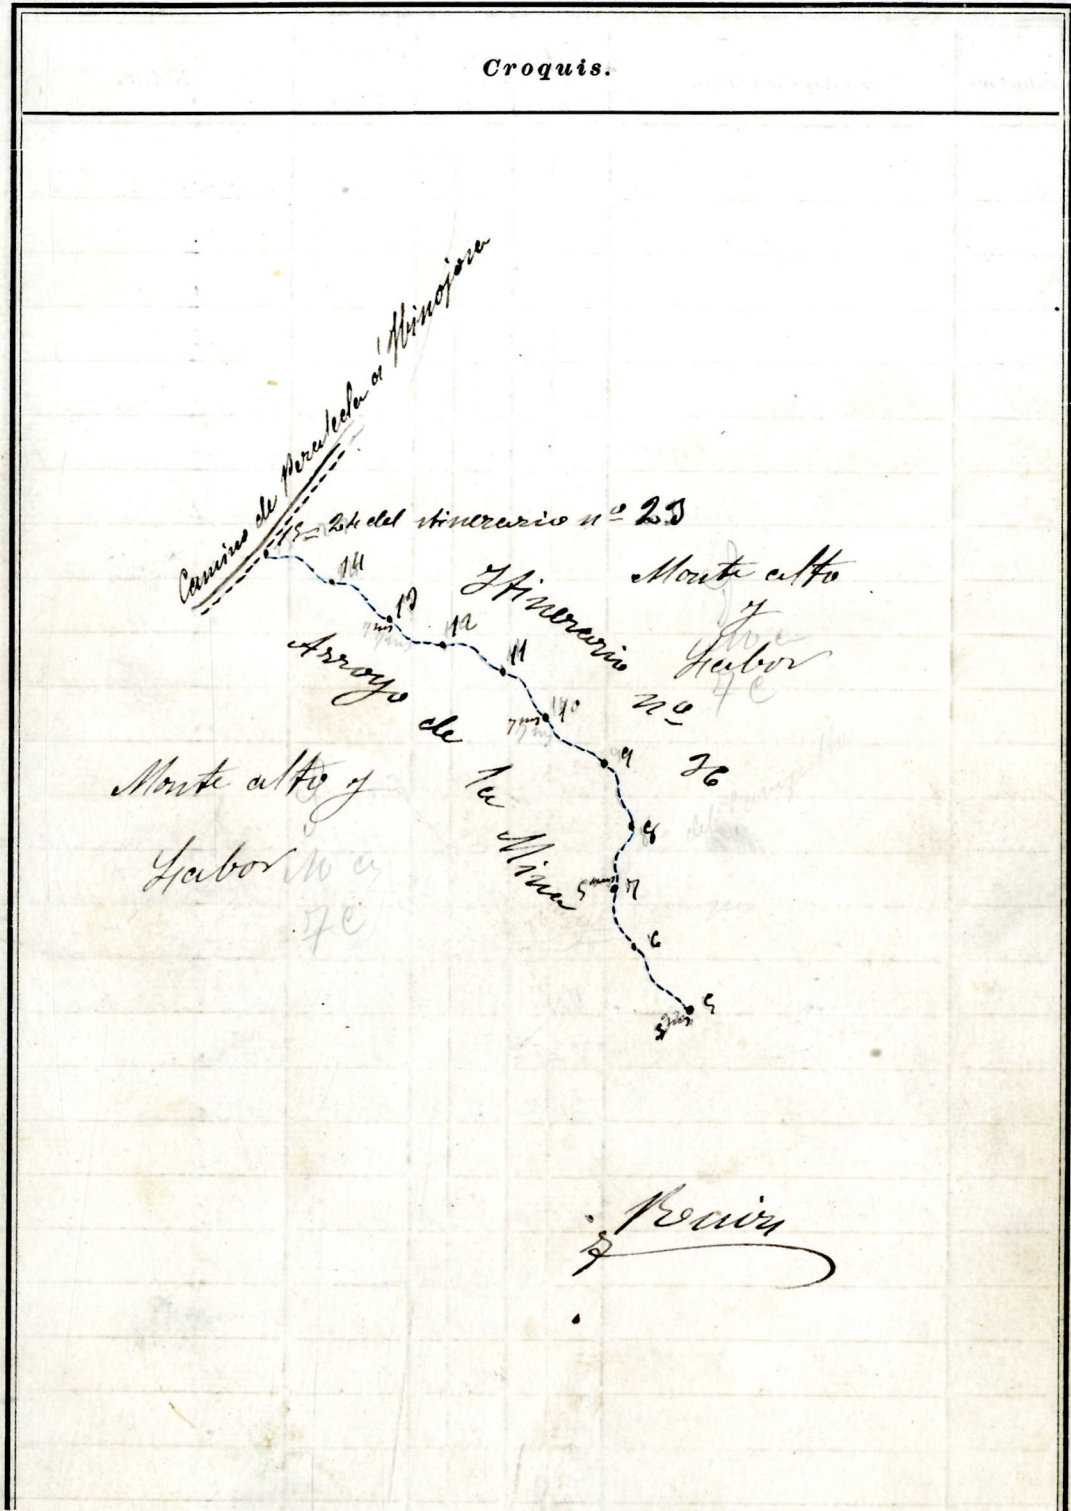 Croquis.
Camino de Peraleda á Hinojosa
15 = 24 del itinerario nº 23
14
13
7 ms
12
11
10
7 ms
9
8
7
5 ms
6
5
5 ms
Itinerario nº 36
Arroyo de la Mina
Monte alto
y
Labor
Monte alto y
Labor